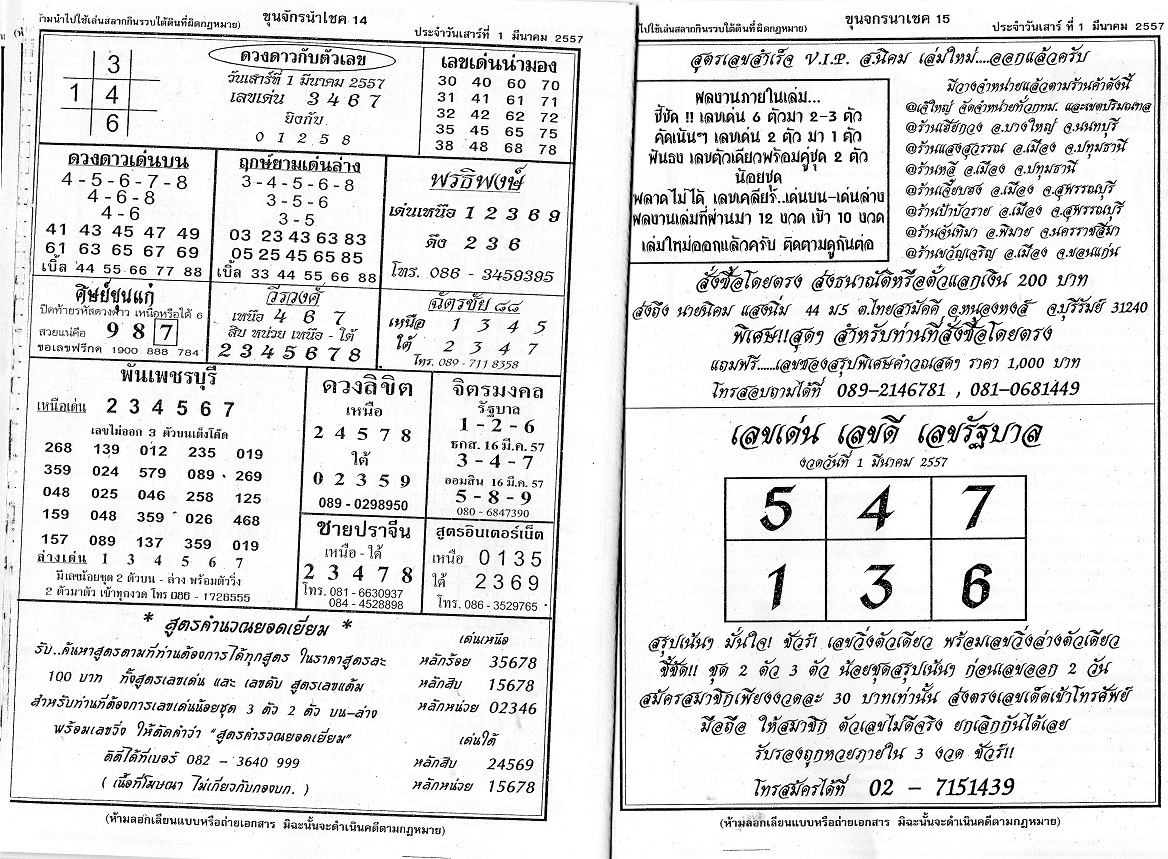 ห้ามนำไปใช้เล่นสลากกินรวบใต้ดินที่ผิดกฎหมาย)
ขุนจักรนำโชค 14
ประจำวันเสาร์ที่ 1 มีนาคม 2557
3
1 4
6
ดวงดาวกับตัวเลข
วันเสาร์ที่ 1 มีนาคม 2557
เลขเด่น 3 4 6 7
ยิงกับ
0 1 2 5 8
เลขเด่นน่ามอง
30 40 60 70
31 41 61 71
32 42 62 72
35 45 65 75
38 48 68 78
ดวงดาวเด่นบน
4-5-6-7-8
4-6-8
4-6
41 43 45 47 49
61 63 65 67 69
เบิ้ล 44 55 66 77 88
ฤกษ์ยามเด่นล่าง
3-4-5-6-8
3-5-6
3-5
03 23 43 63 83
05 25 45 65 85
เบิ้ล 33 44 55 66 88
พรธิพงษ์
เด่นเหนือ 1 2 3 6 9
ดึง 2 3 6
โทร. 086 - 3459395
ศิษย์ขุนแก่
ปิดท้ายรหัสดวงดาว เหนือหรือใต้ 6
สวยแน่คือ 9 8 7
ขอเลขฟรีกด 1900 888 784
วีรวงศ์
เหนือ 4 6 7
สิบ หน่วย เหนือ - ใต้
2 3 4 5 6 7 8
ฉัตรชัย ๘๘
เหนือ 1 3 4 5
ใต้ 2 3 4 7
โทร. 089 - 711 8358
พันเพชรบุรี
เหนือเด่น 2 3 4 5 6 7
เลขไม่ออก 3 ตัวบนเต็งโต๊ด
268 139 012 235 019
359 024 579 089 269
048 025 046 258 125
159 048 359 026 468
157 089 137 359 019
ล่างเด่น 1 3 4 5 6 7
มีเลขน้อยชุด 2 ตัวบน - ล่าง พร้อมตัววิ่ง
2 ตัวมาตัว เข้าทุกงวด โทร 086 - 1726555
ดวงลิขิต
เหนือ
2 4 5 7 8
ใต้
0 2 3 5 9
089 - 0298950
จิตรมงคล
รัฐบาล
1 - 2 - 6
ธกส. 16 มี.ค. 57
3 - 4 - 7
ออมสิน 16 มี.ค. 57
5 - 8 - 9
080 - 6847390
ชายปราจีน
เหนือ - ใต้
2 3 4 7 8
โทร. 081 - 6630937
084 - 4528898
สูตรอินเตอร์เน็ต
เหนือ 0 1 3 5
ใต้ 2 3 6 9
โทร. 086 - 3529765
* สูตรคำนวณยอดเยี่ยม *
รับ..ค้นหาสูตรตามที่ท่านต้องการได้ทุกสูตร ในราคาสูตรละ
100 บาท ทั้งสูตรเลขเด่น และ เลขดับ สูตรเลขแต้ม
สำหรับท่านที่ต้องการเลขเด่นน้อยชุด 3 ตัว 2 ตัว บน-ล่าง
พร้อมเลขวิ่ง ให้ตัดคำว่า "สูตรคำรวณยอดเยี่ยม"
ติดต่ได้ที่เบอร์ 082 - 3640 999
( เนื้อที่โฆษณา ไม่เกี่ยวกับกองบก. )
เด่นเหนือ
หลักร้อย 35678
หลักสิบ 15678
หลักหน่วย 02346
เด่นใต้
หลักสิบ 24569
หลักหน่วย 15678
(ห้ามลอกเลียนแบบหรือถ่ายเอกสาร มิฉะนั้นจะดำเนินคดีตามกฎหมาย)
ไปใช้เล่นสลากกินรวบใต้ดินที่ผิดกฎหมาย)
ขุนจักรนำโชค 15
ประจำวันเสาร์ ที่ 1 มีนาคม 2557
สูตรเลขสำเร็จ V.I.P. ส.นิคม เล่มใหม่....ออกแล้วครับ
ผลงานภายในเล่ม...
ชี้ชัด !! เลขเด่น 6 ตัวมา 2-3 ตัว
คัดเน้นๆ เลขเด่น 2 ตัว มา 1 ตัว
ฟันธง เลขตัวเดียวพร้อมคู่ชุด 2 ตัว
น้อยชุด
พลาดไม่ได้ เลขเคลียร์..เด่นบน-เด่นล่าง
ผลงานเล่มที่ผ่านมา 12 งวด เข้า 10 งวด
เล่มใหม่ออกแล้วครับ ติดตามดูกันต่อ
มีวางจำหน่ายแล้วตามร้านค้าดังนี้
@เจ๊ใหญ่ จัดจำหน่ายทั่วกทม. และเขตปริมณฑล
@ร้านเฮียกวง อ.บางใหญ่ จ.นนทบุรี
@ร้านแสงสุวรรณ อ.เมือง จ.ปทุมธานี
@ร้านหลี อ.เมือง จ.ปทุมธานี
@ร้านเจี๊ยบฮง อ.เมือง จ.สุพรรณบุรี
@ร้านป้าบัวราย อ.เมือง จ.สุพรรณบุรี
@ร้านจันทิมา อ.พิมาย จ.นครราชสีมา
@ร้านขวัญเจริญ อ.เมือง จ.ขอนแก่น
สั่งซื้อโดยตรง ส่งธนาณัติหรือตั๋วแลกเงิน 200 บาท
ส่งถึง นายนิคม แสงนิ่ม 44 ม5 ต.ไทยสามัคคี อ.หนองหงส์ จ.บุรีรัมย์ 31240
พิเศษ!!สุดๆ สำหรับท่านที่สั่งซื้อโดยตรง
แถมฟรี......เลขซองสรุปพิเศษคำวณสดๆ ราคา 1,000 บาท
โทรสอบถามได้ที่ 089-2146781 , 081-0681449
เลขเด่น เลขดี เลขรัฐบาล
งวดวันที่ 1 มีนาคม 2557
5 4 7
1 3 6
สรุปเน้นๆ มั่นใจ! ชัวร์! เลขวิ่งตัวเดียว พร้อมเลขวิ่งล่างตัวเดียว
ชี้ชัด!! ชุด 2 ตัว 3 ตัว น้อยชุดสรุปเน้นๆ ก่อนเลขออก 2 วัน
สมัครสมาชิกเพียงงวดละ 30 บาทเท่านั้น ส่งตรงเลขเด็ดเข้าโทรศัพย์
มือถือ ให้สมาชิก ตัวเลขไม่ดีจริง ยกเลิกกันได้เลย
รับรองถูกหวยภายใน 3 งวด ชัวร์!!
โทรสมัครได้ที่ 02 - 7151439
(ห้ามลอกเลียนแบบหรือถ่ายเอกสาร มิฉะนั้นจะดำเนินคดีตามกฎหมาย)